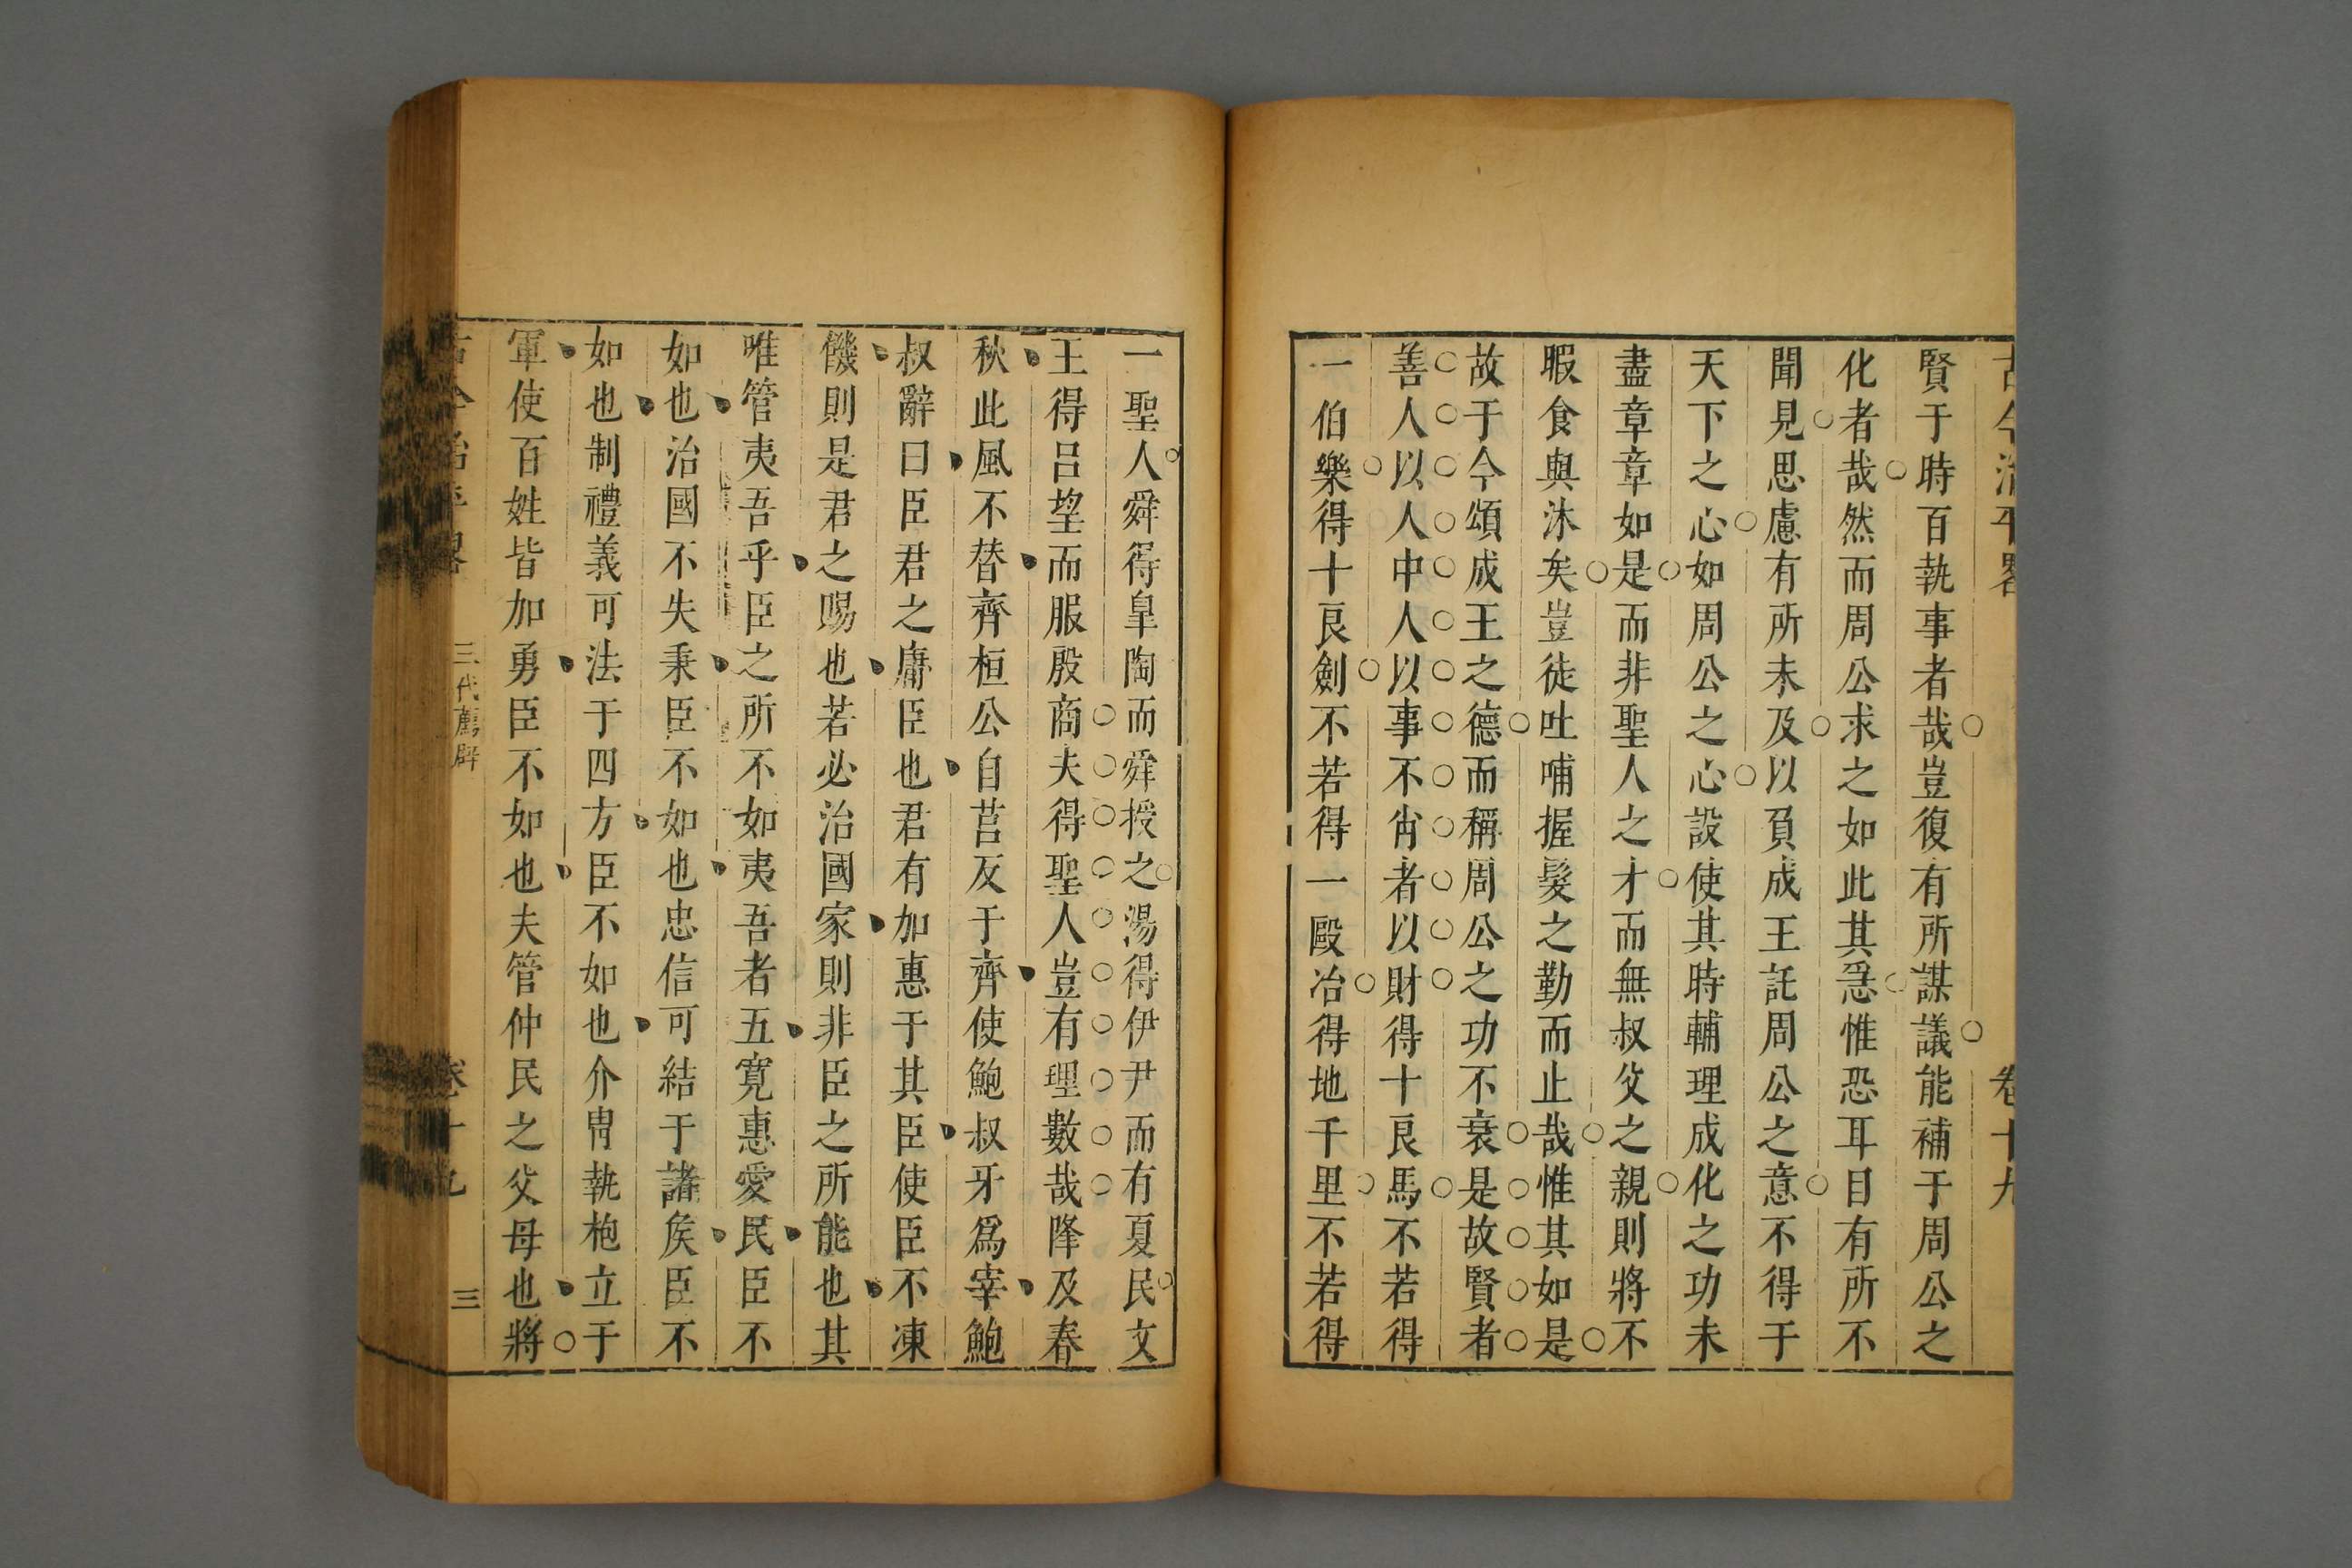 古今治平畧 卷十九
賢于時百執事者哉豈復有所謀議能補于周公之
化者哉然而周公求之如此其急惟恐耳目有所不
聞見思慮有所未及以負成王託周公之意不得于
天下之心如周公之心設使其時輔理成化之功未
盡章章如是而非聖人之才而無叔父之親則將不
暇食與沐矣豈徒吐哺握髮之勤而止哉惟其如是
故于今頌成王之德而稱周公之功不衰是故賢者
善人以人中人以事不肖者以財得十良馬不若得
一伯樂得十良劍不若得一歐冶得地千里不若得
一聖人舜得皐陶而舜授之湯得伊尹而有夏民文
王得呂望而服殷商夫得聖人豈有理數哉降及春
秋此風不替齊桓公自莒反于齊使鮑叔牙爲宰鮑
叔辭曰臣君之庸臣也君有加惠于其臣使臣不凍
饑則是君之賜也若必治國家則非臣之所能也其
唯管夷吾乎臣之所不如夷吾者五寛惠愛民臣不
如也治國不失秉臣不如也忠信可結于諸矦臣不
如也制禮義可法于四方臣不如也介冑執枹立于
軍使百姓皆加勇臣不如也夫管仲民之父母也將
古今治平畧 三代薦辟 卷十九 三